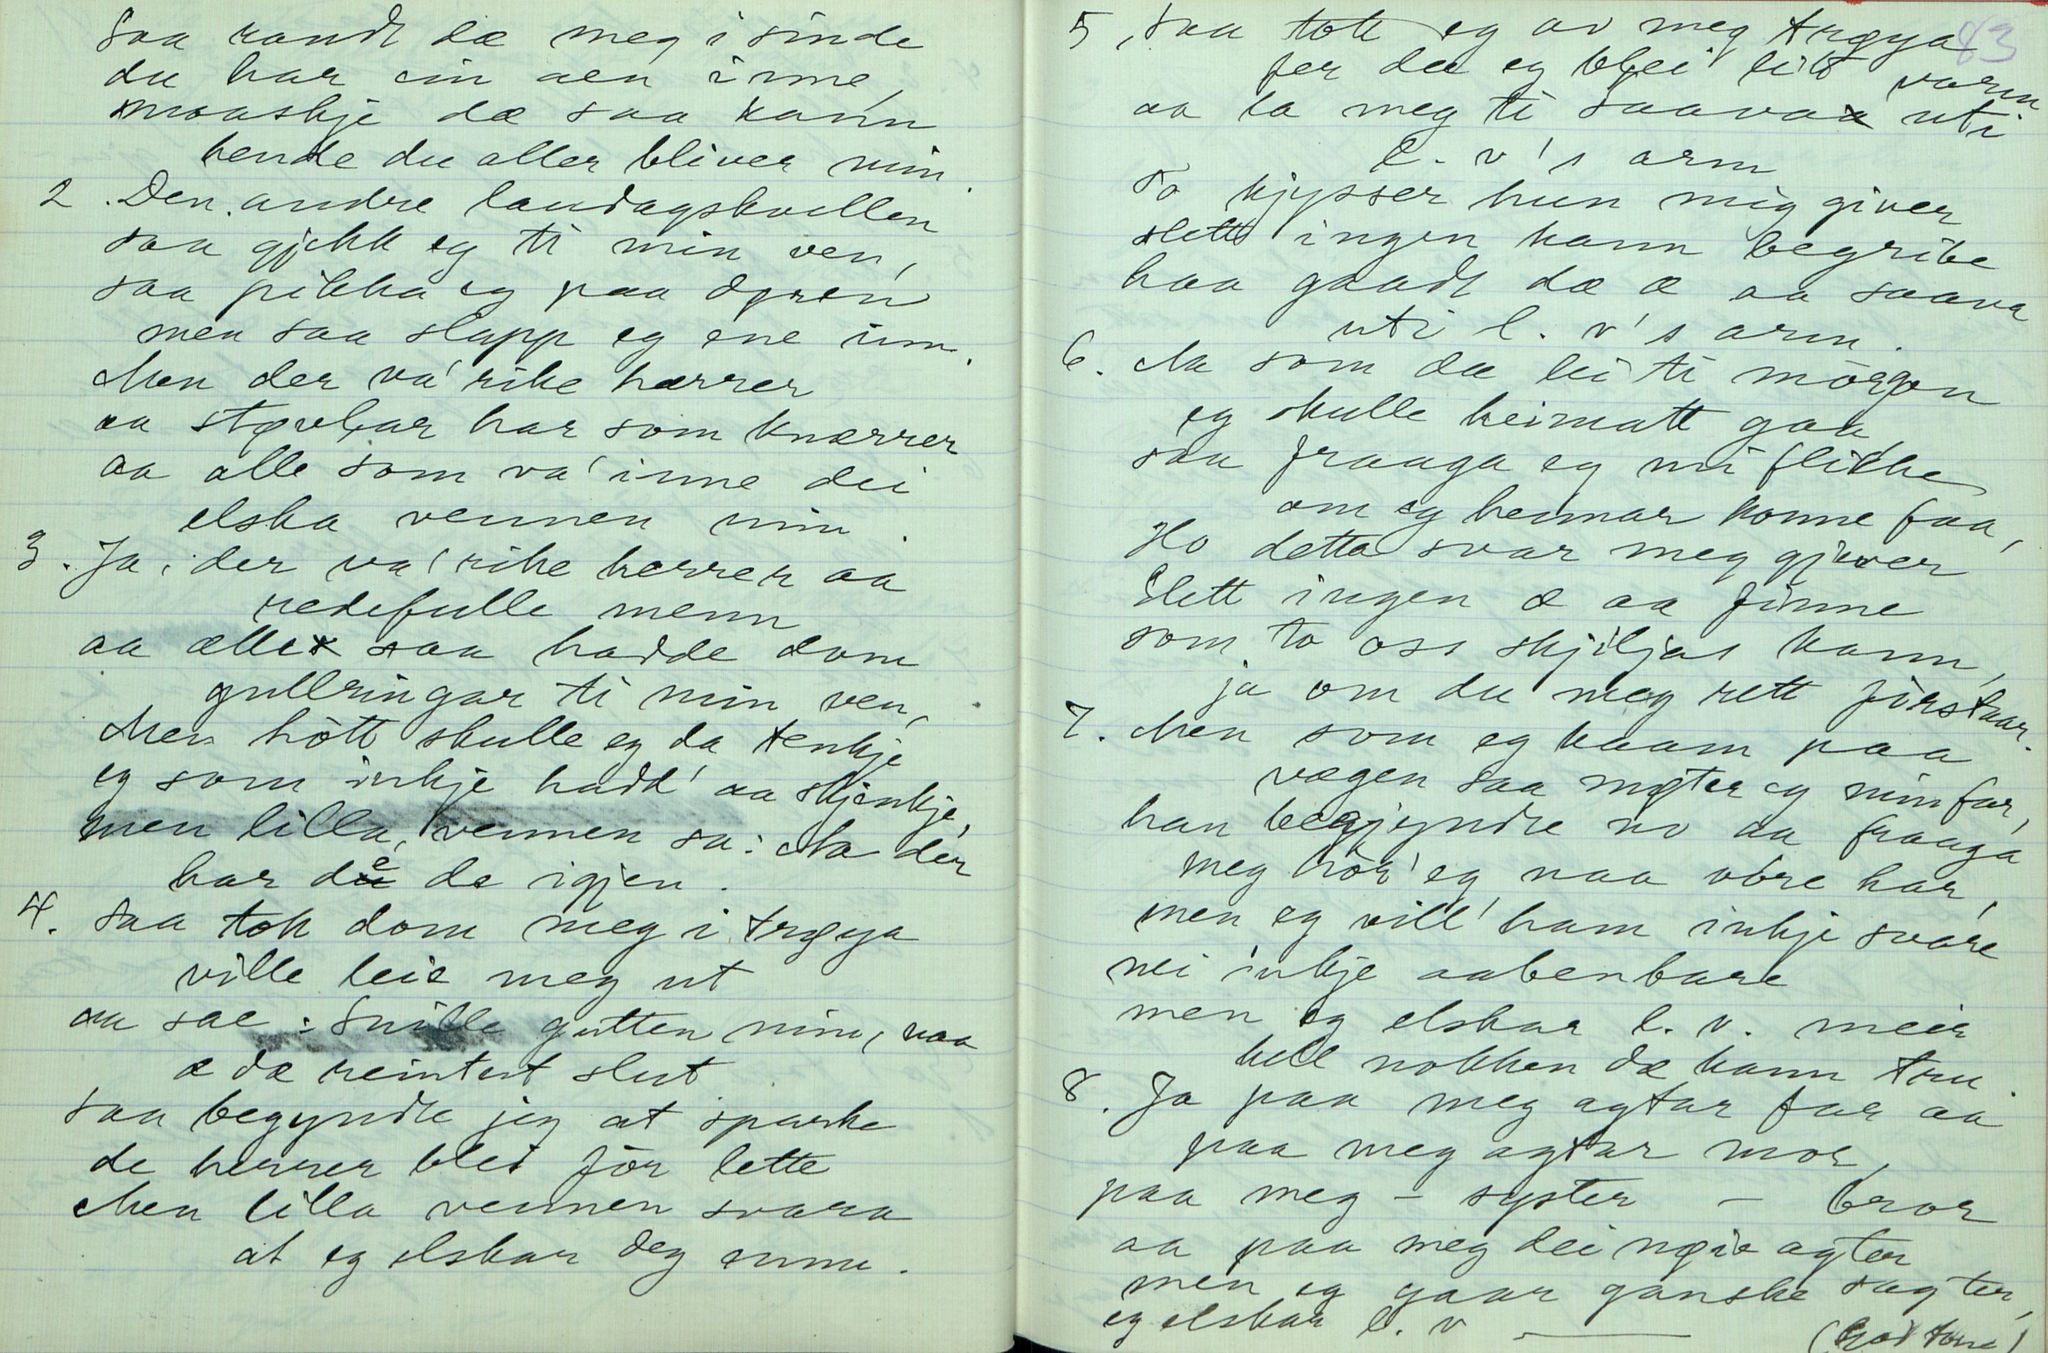 Saa randt dæ meg i sinde
du har ein aen i me,
maaskje dæ saa kann
hende du aller bliver min.
2. Den andre laudagskvellen
saa gjekk eg ti min ven,
saa pikka eg paa døren
men saa slapp eg ene inn.
Men der va' rike hærrer
aa støvlar har som knærrer
aa alle som va' inne dei
elska vennen min.
3. Ja, der va' rike herrer aa
redefulle menn
aa ælle saa hadde dom
gullringar ti min ven,
Men hòtt skulle eg da tenkje
eg som inkje hadd' aa skjenkje,
men lilla vennen sa: Na der
har de de igjen.
4. Saa tok dom meg i trøya
ville leie meg ut
aa sae: Snille gutten min, naa
æ dæ reintut slut
saa begyndte jeg at sparke
de herrer bleiför lette
Men lilla vennen svara
at eg elskar deg ennu.
83
5, Saa tok eg av meg trøya
for dæ eg blei litt varm
aa la meg ti saava uti
l. v's arm
To kjysser hun mig giver
slett ingen kann begribe
haa gaadt dæ æ aa saava
uti l. v's arm.
6. Na som dæ lei ti mörgon
eg skulle heimatt gaa
saa fraaga eg mi flikke
om eg hennar konne faa,
Ho detta svar meg gjiver
Slett ingen æ aa finne
som to oss skjiljas kann,
ja om du meg rett förstaar.
7. Men som eg kaam paa
vægen saa møter eg min far,
han begjyndte no aa fraaga
meg hör' eg naa vöre har,
men eg vill' ham inkje svare
nei inkje aabenbare
men eg elskar l. v. meir
hell nokken dæ kann tru.
8. Ja paa meg agtar far aa
paa meg agtar mor,
paa meg – syster – bror
aa paa meg dei nøie agter
men eg gaar ganske sagter,
eg elskar l. v. ———
(God tone)